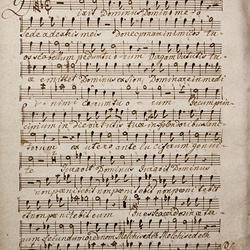 Dixit Dominus Domino meo
sede a dextris meis Donec ponam inimicos tu
os scabellum pedum tuorum Virgam virtutis tuae
emittet Dominus ex Sion Dominare in medi
o inimicorum tuorum Tecum prin
cipium in die virtutis tuae in splendoribus sanc
torum ex utero ante luciferum genui te
Juravit Dominus Juravit Dominus
non paenitebit non paenitebit non paenitebit
et non paenitebit eum Tu es sacerdos in aeter
num secundum ordinem Melchisedech Melchisedech